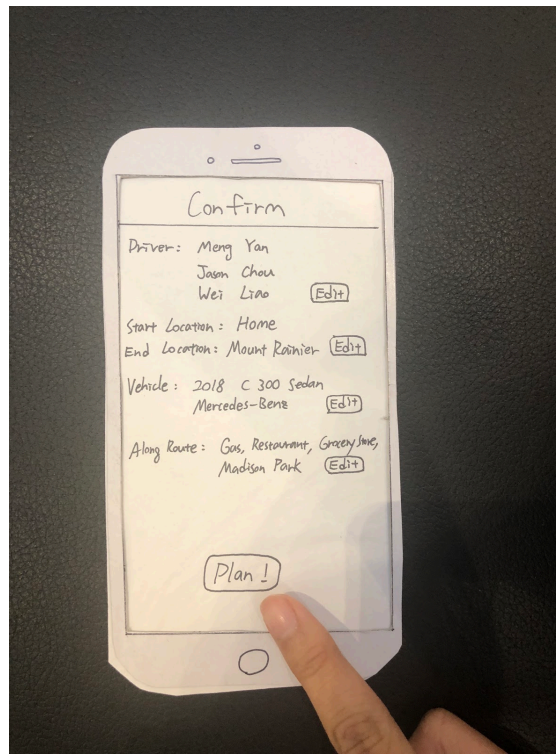 Confirm
Driver: Meng Yan
Jason Chou
Wei Liao Edit
Start Location: Home
End Location: Mount Rainier Edit
Vehicle: 2018 C 300 Sedan
Mercedes-Benz Edit
Along Route: Gas, Restaurant, Grocery Store,
Madison Park Edit
Plan!